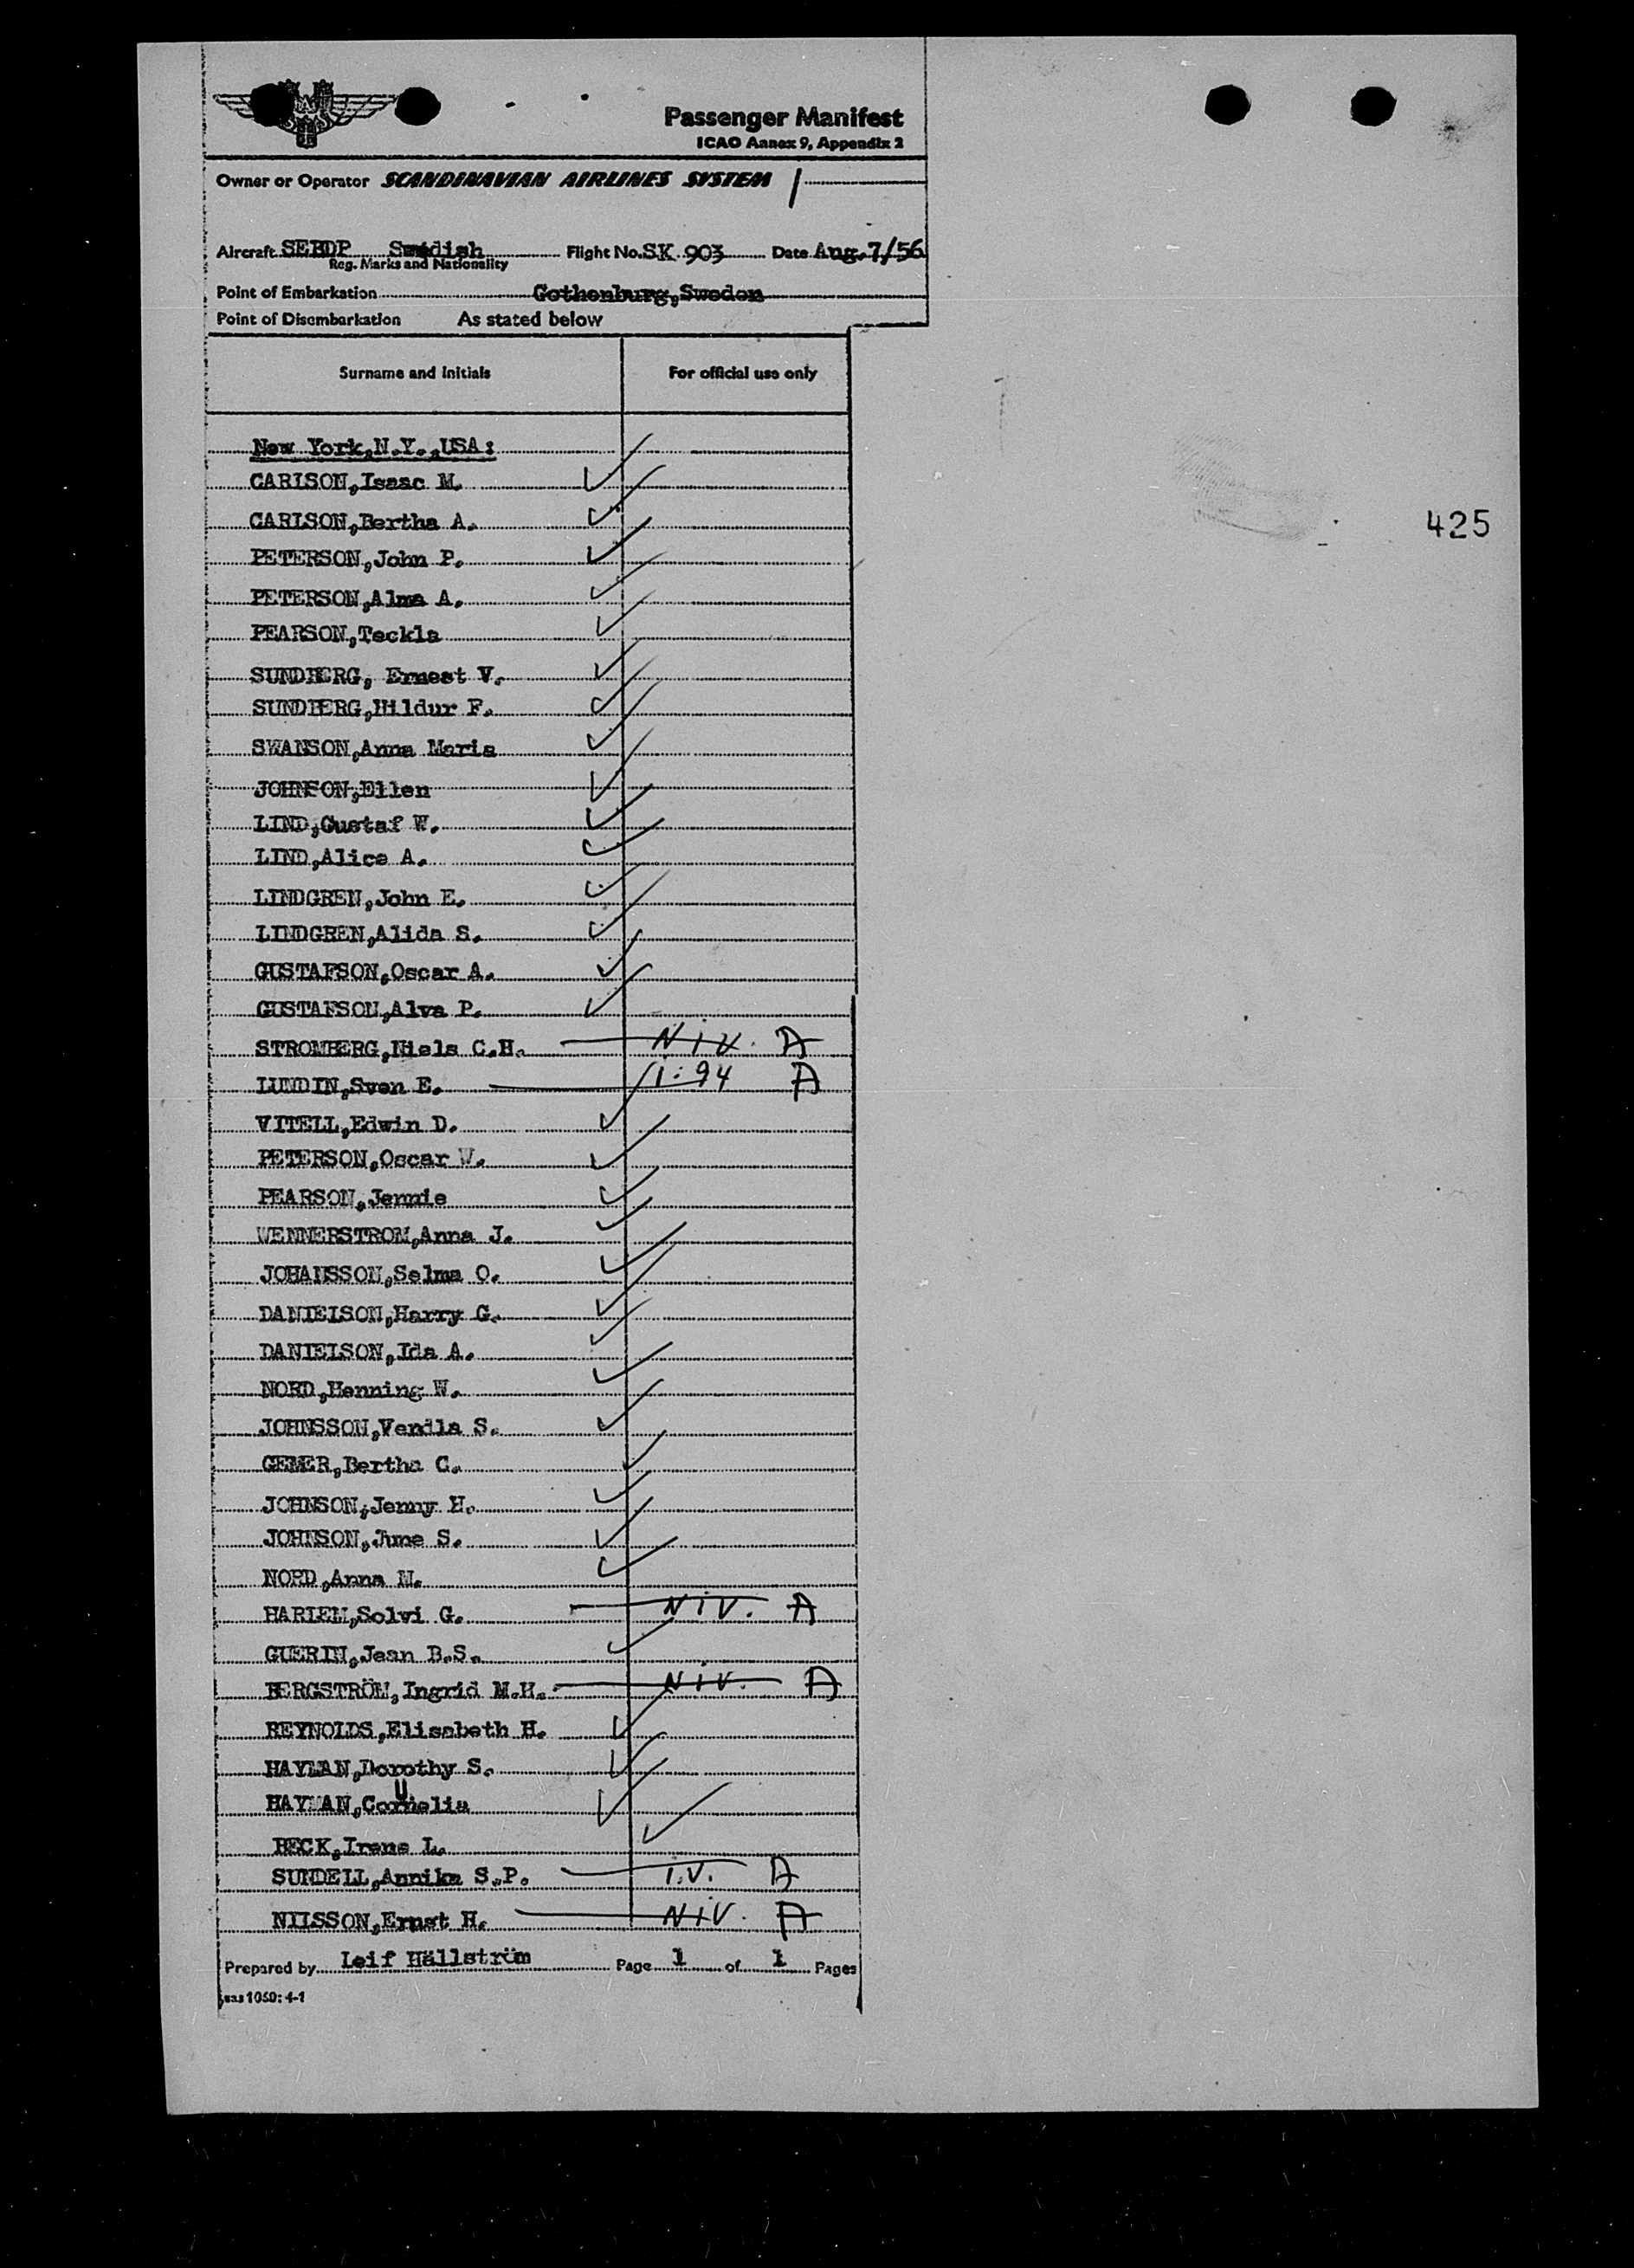 Passenger Manifest
ICAO Annex 9, Appendix 2
Owner or Operator SCANDINAVIAN AIRLINES SYSTEM
Aircraft SEBDP Swedish Flight No. SK 903 Date Aug. 7/56
Reg. Marks and Nationality
Point of Embarkation Gothenburg,Sweden
Point of Disembarkation As stated below
Surname and Initials For official use only
New York,N.Y.,USA:
CARLSON,Isaac M.
425
CARLSON,Bertha A.
PETERSON,John P.
PETERSON,Alma A.
PEARSON,Teckla
SUNDBERG, Ernest V.
SUNDBERG,Hildur F.
SWANSON,Anna Maria
JOHNSON,Ellen
LIND,Gustaf W.
LIND,Alice A.
LINDGREN,John E.
LINDGREN,Alida S.
GUSTAFSON,Oscar A.
GUSTAFSON,Alva P.
STROMBERG,Niels C.H. NIV. A
LUNDIN,Sven E. I:94 A
VITELL,Edwin D.
PETERSON,Oscar W.
PEARSON,Jennie
WENNERSTROM,Anna J.
JOHANSSON,Selma O.
DANIELSON,Harry G.
DANIELSON,Ida A.
NORD,Henning W.
JOHNSSON,Vendla S.
GEMER,Bertha C.
JOHNSON,Jenny H.
JOHNSON,June S.
NORD,Anna M.
HARLEM,Solvi G. NIV. A
GUERIN,Jean B.S.
BERGSTRÖM,Ingrid M.H. NIV. A
REYNOLDS,Elisabeth H.
HAYMAN,Dorothy S.
HAYMAN,Cornelia
BECK,Irene L.
SUNDELL,Annika S.P. I.V. A
NILSSON,Ernst H. NIV. A
Prepared by Leif Hällström Page 1 of 1 Pages
sas 1050: 4-1